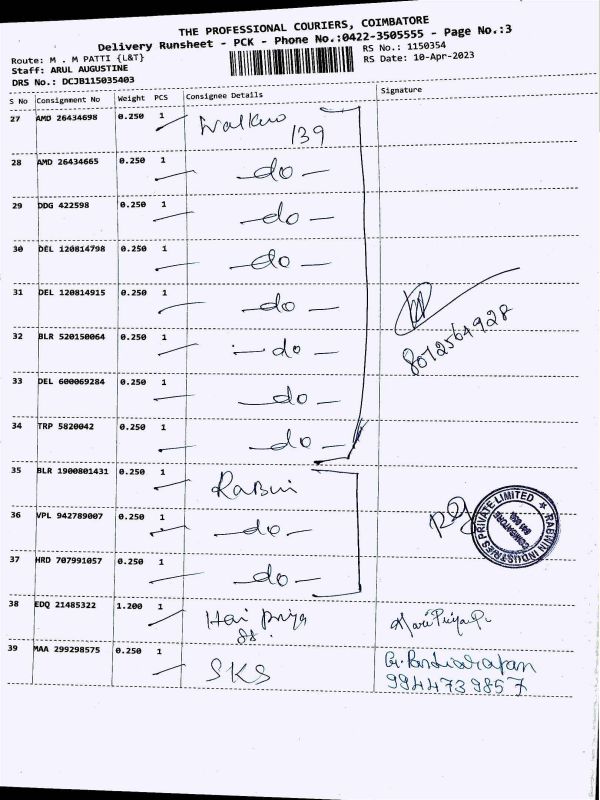 THE PROFESSIONAL COURIERS, COIMBATORE
Delivery Runsheet - PCK - Phone No.:0422-3505555 - Page No.:3
Route: M . M PATTI {L&T}
RS No.: 1150354
Staff: ARUL AUGUSTINE
RS Date: 10-Apr-2023
DRS No.: DCJB115035403
S No Consignment No Weight PCS Consignee Details Signature
27 AMD 26434698 0.250 1
139
28 AMD 26434665 0.250 1 - do -
29 DDG 422598 0.250 1 - do -
30 DEL 120814798 0.250 1 - do -
31 DEL 120814915 0.250 1 - do -
32 BLR 520150064 0.250 1 - do -
8072564928
33 DEL 600069284 0.250 1 - do -
34 TRP 5820042 0.250 1 - do -
35 BLR 1900801431 0.250 1
36 VPL 942789007 0.250 1 - do -
RABWIN INDUSTRIES PRIVATE LIMITED
COIMBATORE
37 HRD 707991057 0.250 1 - do -
38 EDQ 21485322 1.200 1 Hari Priya HariPriya
39 MAA 299298575 0.250 1 SKS
9944739857